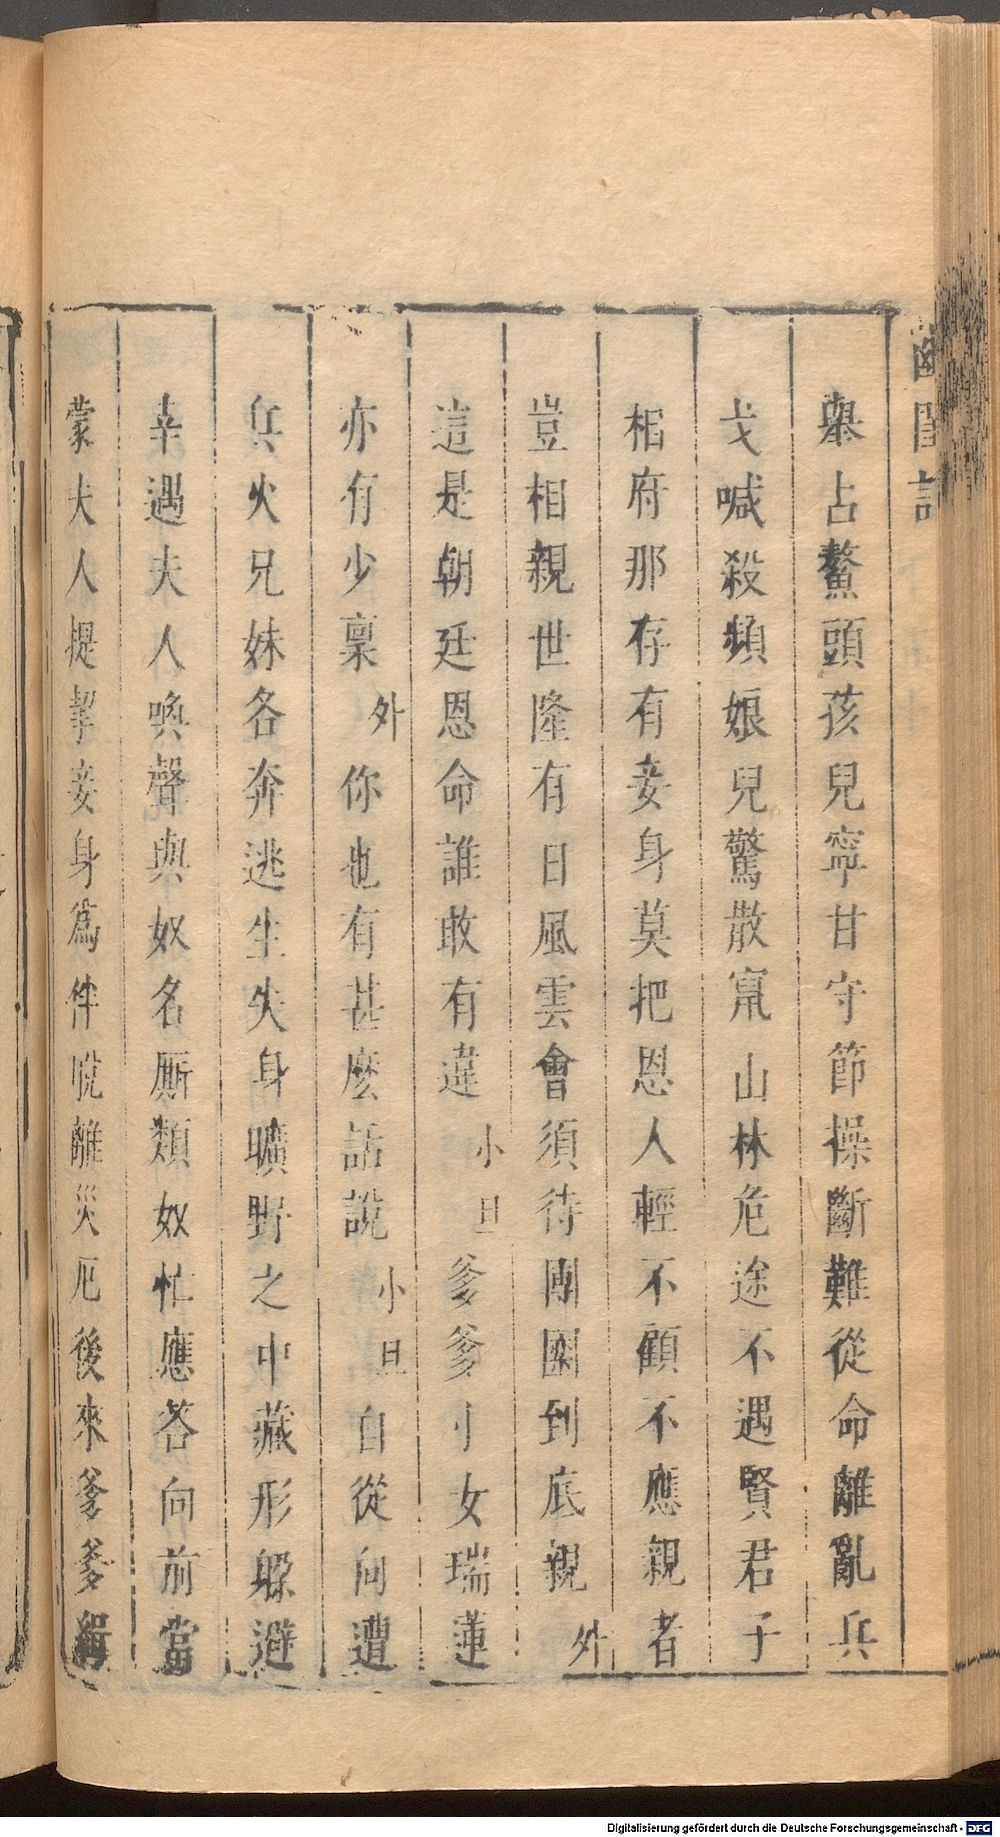 幽閨記
舉占鰲頭孩兒寧甘守節操斷難從命離亂兵
戈喊殺頻娘兒驚散竄山林危途不遇賢君子
相府那存有妾身莫把恩人輕不顧不應親者
豈相親世隆有日風雲會須待團圞到底親外
這是朝廷恩命誰敢有違小旦爹爹小女瑞蓮
亦有少稟外你也有甚麽話說小旦自從向遭
兵火兄妹各奔逃生失身曠野之中藏形躱避
幸遇夫人喚聲與奴名厮類奴忙應答向前當
蒙夫人提挈妾身爲伴脫離災厄後來爹爹緝
Digitalisierung gefördert durch die Deutsche Forschungsgemeinschaft - DFG